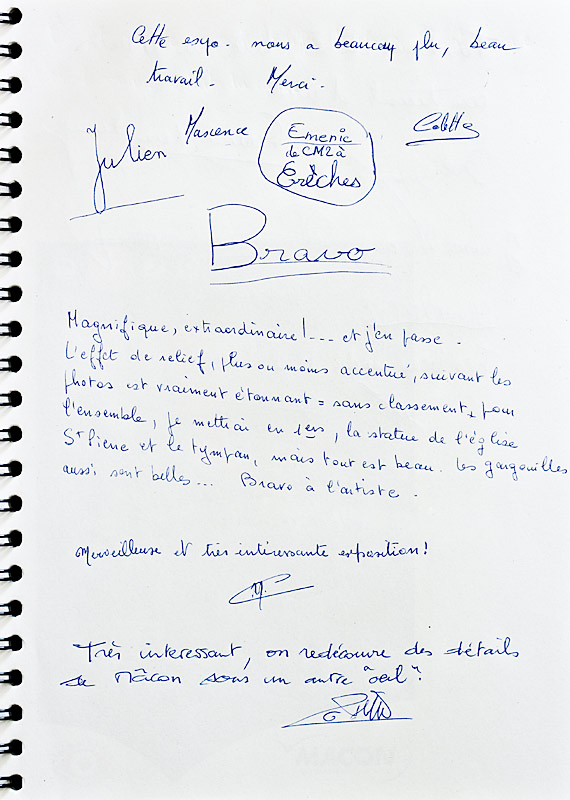 Cette expo. nous a beaucoup plu, beau
travail. Merci.
Julien Maxence Colette
Emeric
de CM2 à
Crêches
Bravo
Magnifique, extraordinaire!... et j'en passe.
L'effet de relief, plus ou moins accentué, suivant les
photos est vraiment étonnant = sans classement, pour
l'ensemble, je mettrai en 1ers, la statue de l'église
St Pierre et le tympan, mais tout est beau. Les gargouilles
aussi sont belles... Bravo à l'artiste.
Merveilleuse et très intéressante exposition!
Très interessant, on redécouvre des détails
de Mâcon sous un autre "oeil".